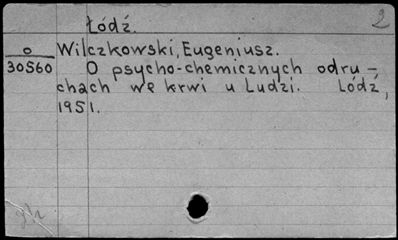 Łódź.
2
o
30560
Wilczkowski, Eugeniusz.
O psycho-chemicznych odru-
chach we krwi u Ludzi. Łódź,
1951.